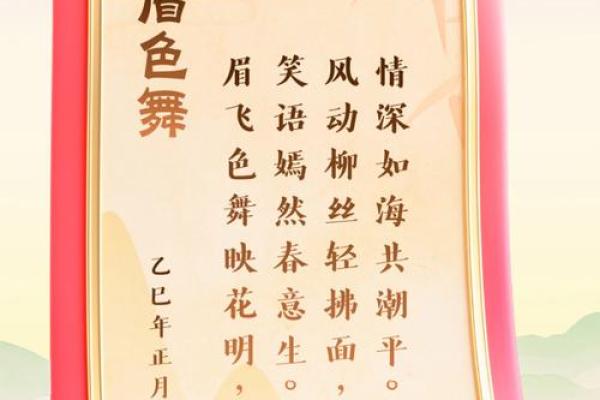 眉色舞
眉飞色舞映花明，
笑语嫣然春意生。
风动柳丝轻拂面，
情深如海共潮平。
乙巳年正月